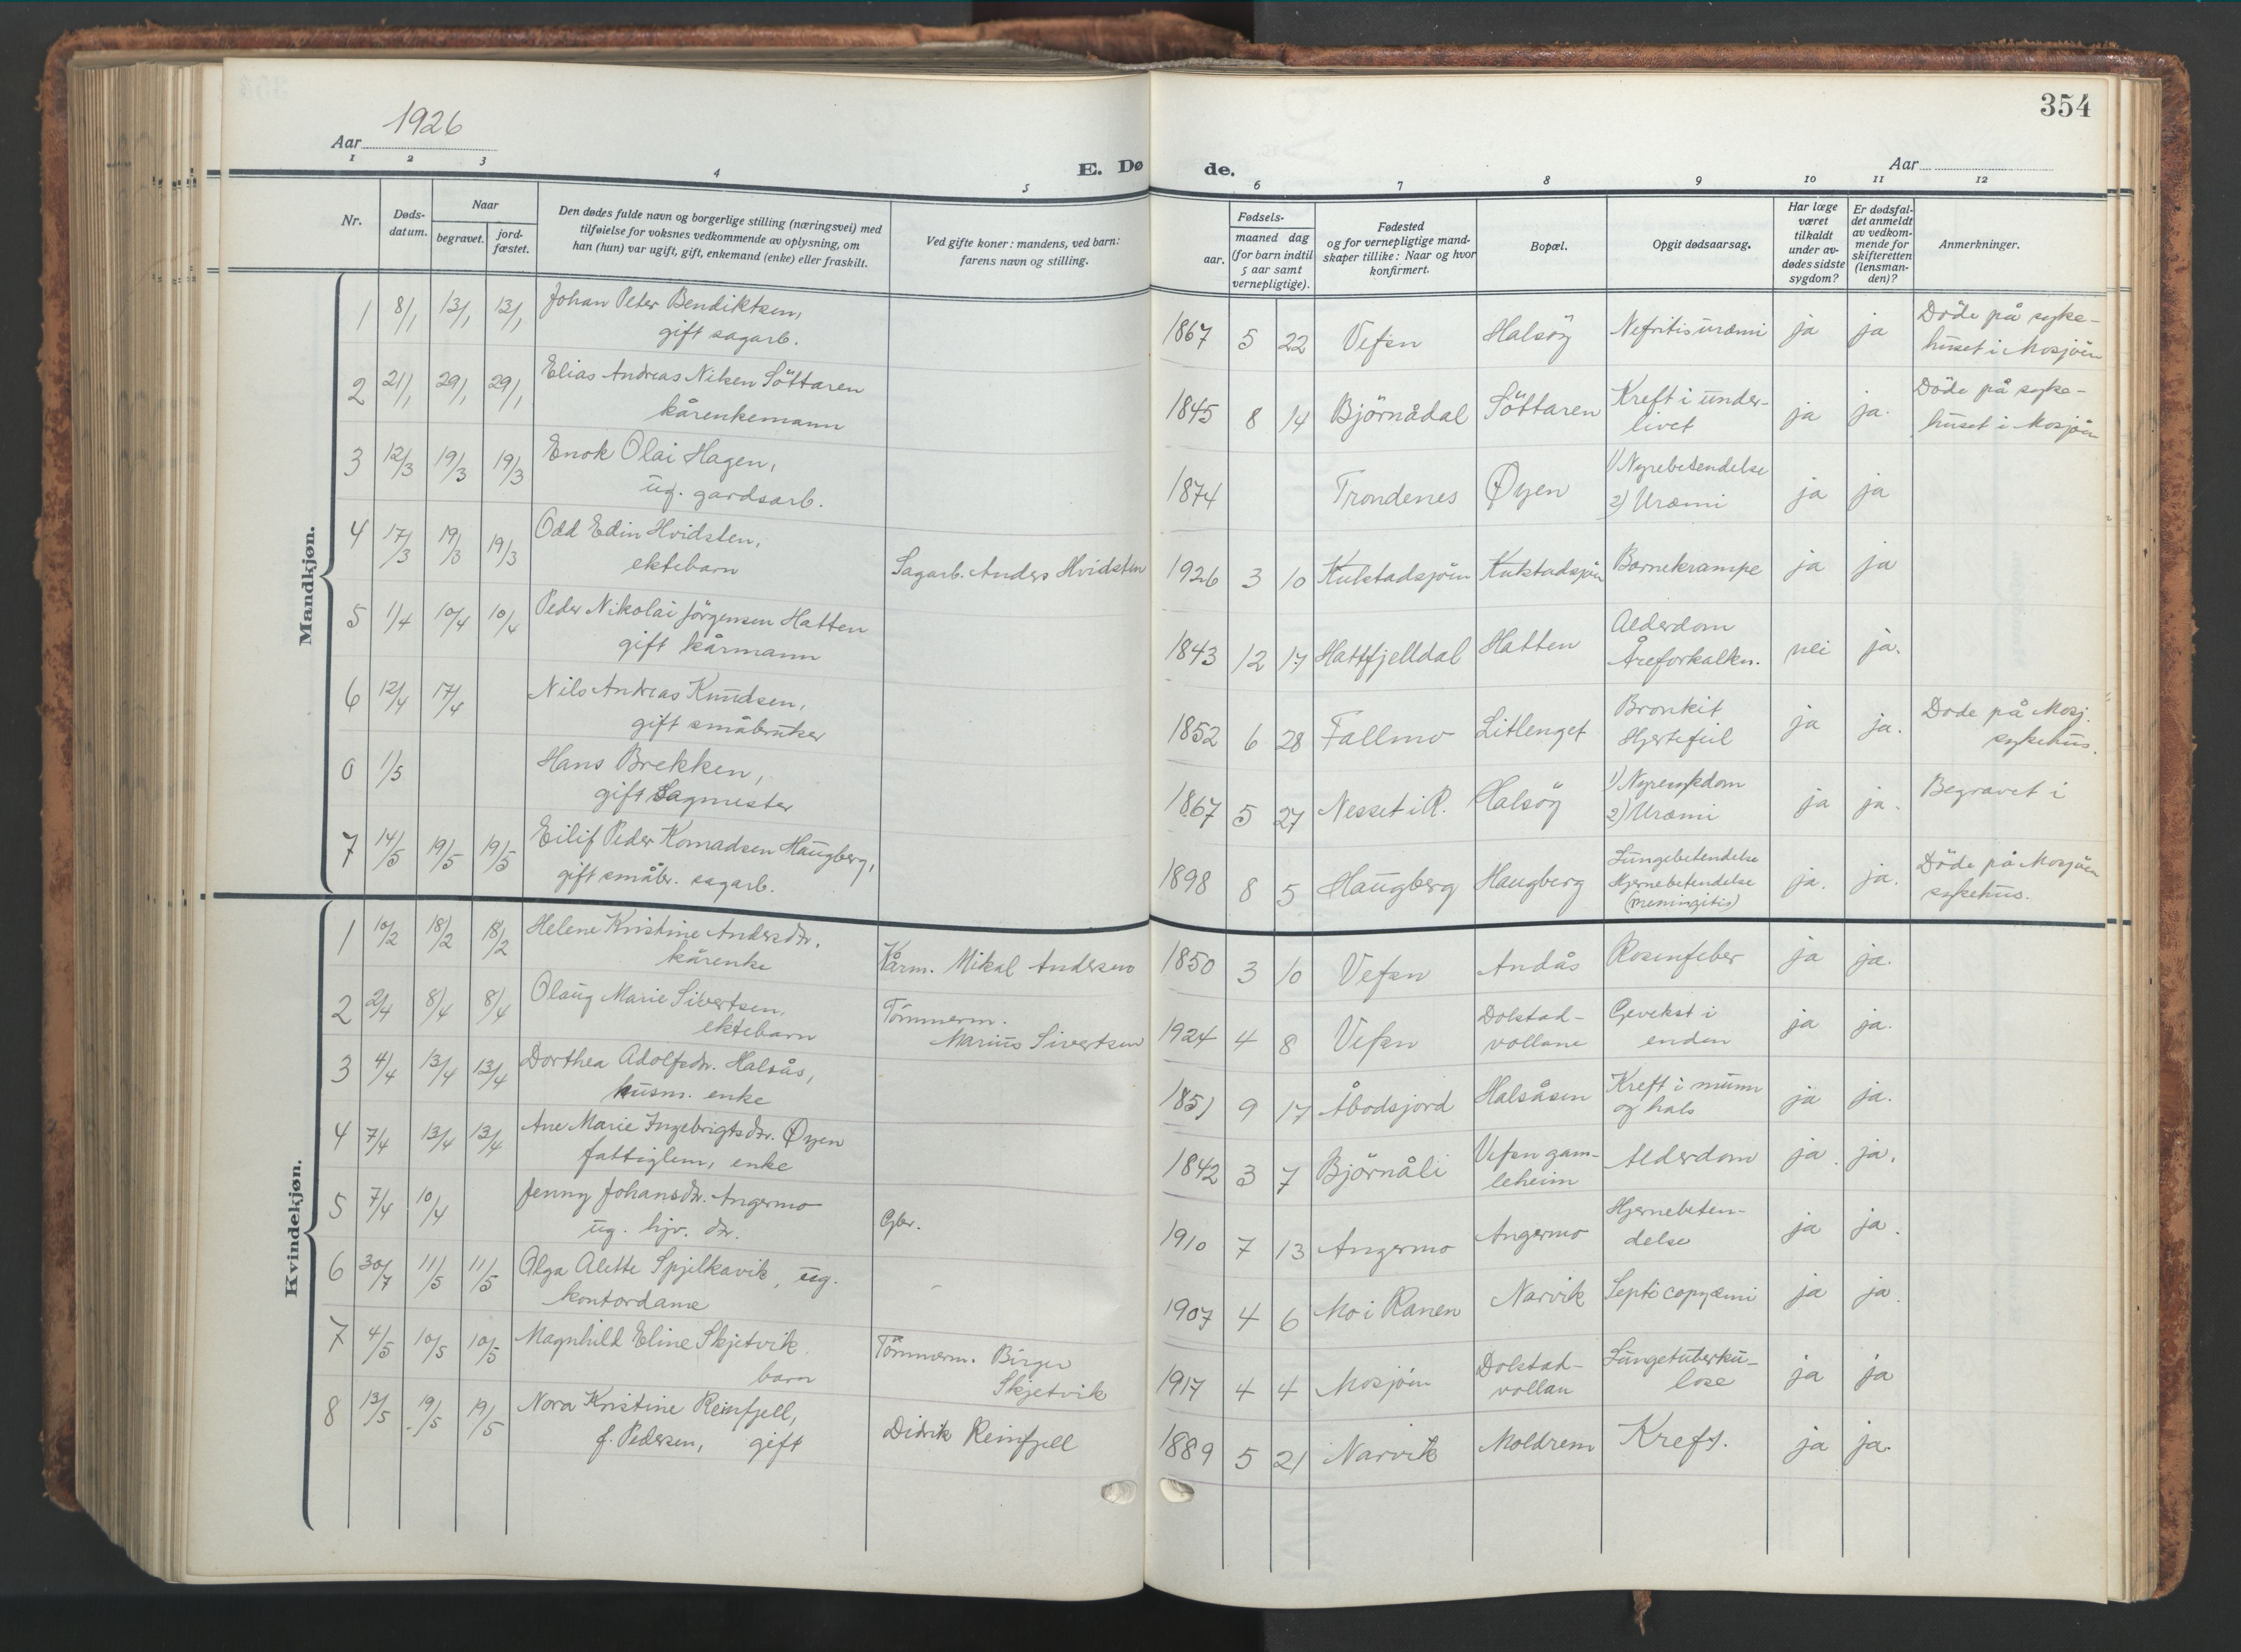 354
Aar 1926
E. Døde.
Aar
1 2 3 4 5 6 7 8 9 10 11 12
Nr.
Døds-datum.
Naar
begravet.
jord-fæstet.
Den dødes fulde navn og borgerlige stilling (næringsvei) med
tilføielse for voksnes vedkommende av oplysning, om
han (hun) var ugift, gift, enkemand (enke) eller fraskilt.
Ved gifte koner: mandens, ved barn:
farens navn og stilling.
Fødsels-
aar.
maaned dag
(for barn indtil
5 aar samt
vernepligtige).
Fødested
og for vernepligtige mand-
skaper tillike: Naar og hvor
konfirmert.
Bopæl.
Opgit dødsaarsag.
Har læge
været
tilkaldt
under av-
dødes sidste
sygdom?
Er dødsfal-
det anmeldt
av vedkom-
mende for
skifteretten
(lensman-
den)?
Anmerkninger.
Mandkjøn.
1 8/1 13/1 13/1 Johan Peter Bendiktsen, 1867 5 22 Vefsn Halsöy Nefritis uræmi ja ja Döde på syke-
gift sagarb. huset i Mosjöen
2 21/1 29/1 29/1 Elias Andreas Nilsen Söttaren 1845 8 14 Björnådal Söttaren Kreft i under- ja ja. Döde på syke-
kårenkemann livet huset i Mosjöen
3 12/3 19/3 19/3 Enok Olai Hagen, 1874 Trondenes Øyen 1) Nyrebetendelse ja ja
ug. gardsarb. 2) Uræmi
4 17/3 19/3 19/3 Odd Edin Hvidsten, Sagarb. Anders Hvidsten 1926 3 10 Kulstadsjöen Kulstadsjöen Barnekrampe ja ja
ektebarn
5 1/4 10/4 10/4 Peder Nikolai Jörgensen Hatten 1843 12 17 Hattfjelldal Hatten Alderdom nei ja.
gift kårmann Åreforkalkn.
6 12/4 17/4 Nils Andreas Knudsen, 1852 6 28 Fallmo Litlenget Bronkit ja ja. Döde på Mosj.
gift småbruker Hjertefeil sykehus.
0 1/5 Hans Brekken, 1867 5 27 Nesset i R. Halsöy 1) Nyresykdom ja ja. Begravet i
gift Sagmester 2) Uræmi
7 14/5 19/5 19/5 Eilif Peder Konradsen Haugberg, 1898 8 5 Haugberg Haugberg Lungebetendelse ja. ja. Döde på Mosjöen
gift småbr. sagarb. Hjernebetendelse sykehus.
(meningitis)
Kvindekjøn.
1 10/2 18/2 18/2 Helene Kristine Andersdtr. Kårm. Mikal Andersen 1850 3 10 Vefsn Andås Rosenfeber ja ja.
kårenke
2 2/4 8/4 8/4 Olaug Marie Sivertsen, Tömmerm. 1924 4 8 Vefsn Dolstad- Gevekst i ja ja.
ektebarn Marius Sivertsen vollane enden
3 4/4 13/4 13/4 Dorthea Adolfsdtr. Halsås, 1851 9 17 Åbodsjord Halsåsen Kreft i munn ja ja.
husm. enke og hals
4 7/4 13/4 13/4 Ane Marie Ingebrigtsdtr. Øyen 1842 3 7 Björnåli Vefsn gam- Alderdom ja. ja.
fattiglem, enke leheim
5 7/4 10/4 Jenny Johansdtr. Angermo Gbr. 1910 7 13 Angermo Angermo Hjernebeten- ja ja.
ug. hjv. dtr. delse
6 30/7 11/5 11/5 Olga Alette Spjelkavik, ug. 1907 4 6 Mo i Ranen Narvik Septicopyæmi ja ja.
kontordame
7 4/5 10/5 10/5 Magnhild Eline Skjetvik Tömmerm. Birger 1917 4 4 Mosjöen Dolstad- Lungetuberku- ja ja
barn Skjetvik vollan lose
8 13/5 19/5 19/5 Nora Kristine Reinfjell, Didrik Reinfjell 1889 5 21 Narvik Moldrem Kreft. ja ja.
f. Pedersen, gift